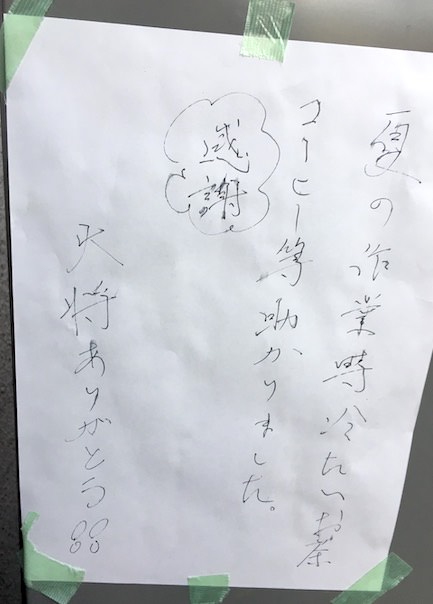 夏の作業時冷たいお茶
コーヒー等助かりました。
感謝
大将ありがとう